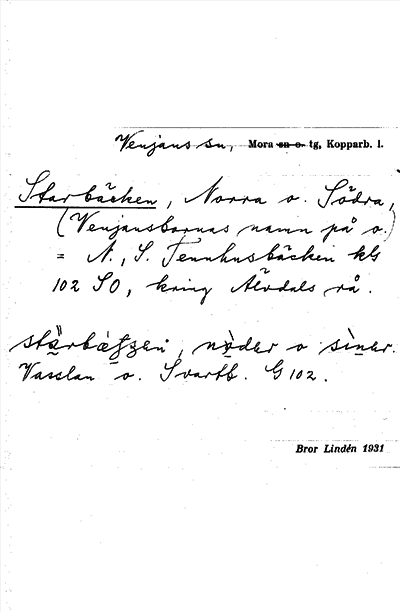 Venjans sn, Mora sn o. tg, Kopparb. l.
Starbäcken, Norra o. Södra,
(Venjansbornas namn på o.)
= N., S. Tennhusbäcken kbl
102 SO, kring Älvdals rå.
nòder o sìner.
Vasslan o. Svartb. G 102.
Bror Lindén 1931